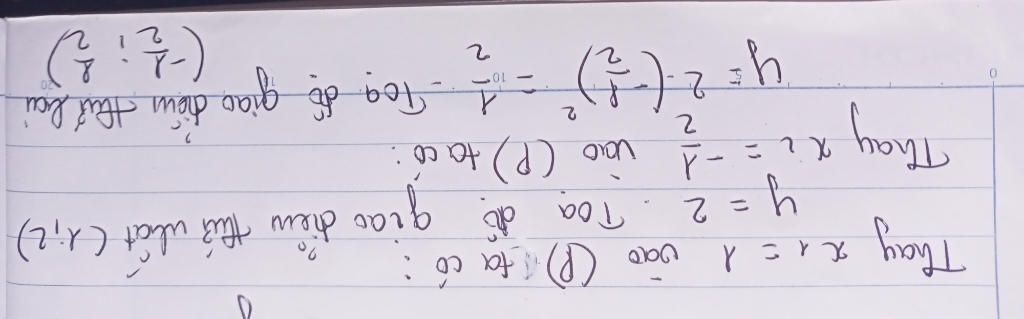 Thay x1 = 1 vào (P) ta có:
y = 2. Toạ độ giao điểm thứ nhất (1;2)
Thay x2 = -1/2 vào (P) ta có:
y = 2.(-1/2)² = 1/2. Toạ độ giao điểm thứ hai
(-1/2; 1/2)